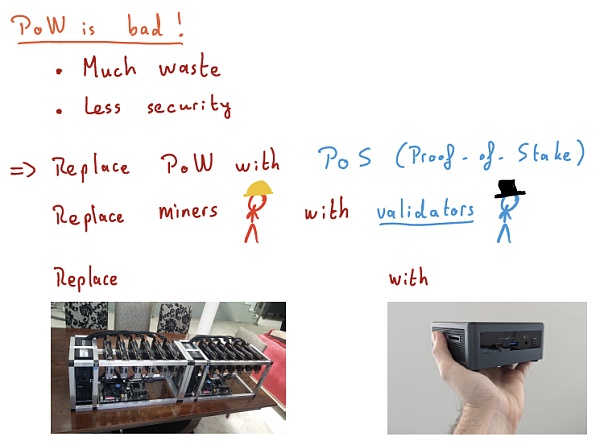 PoW is bad!
• Much waste
• Less security
=> Replace PoW with PoS (Proof-of-Stake)
Replace miners with validators
Replace with